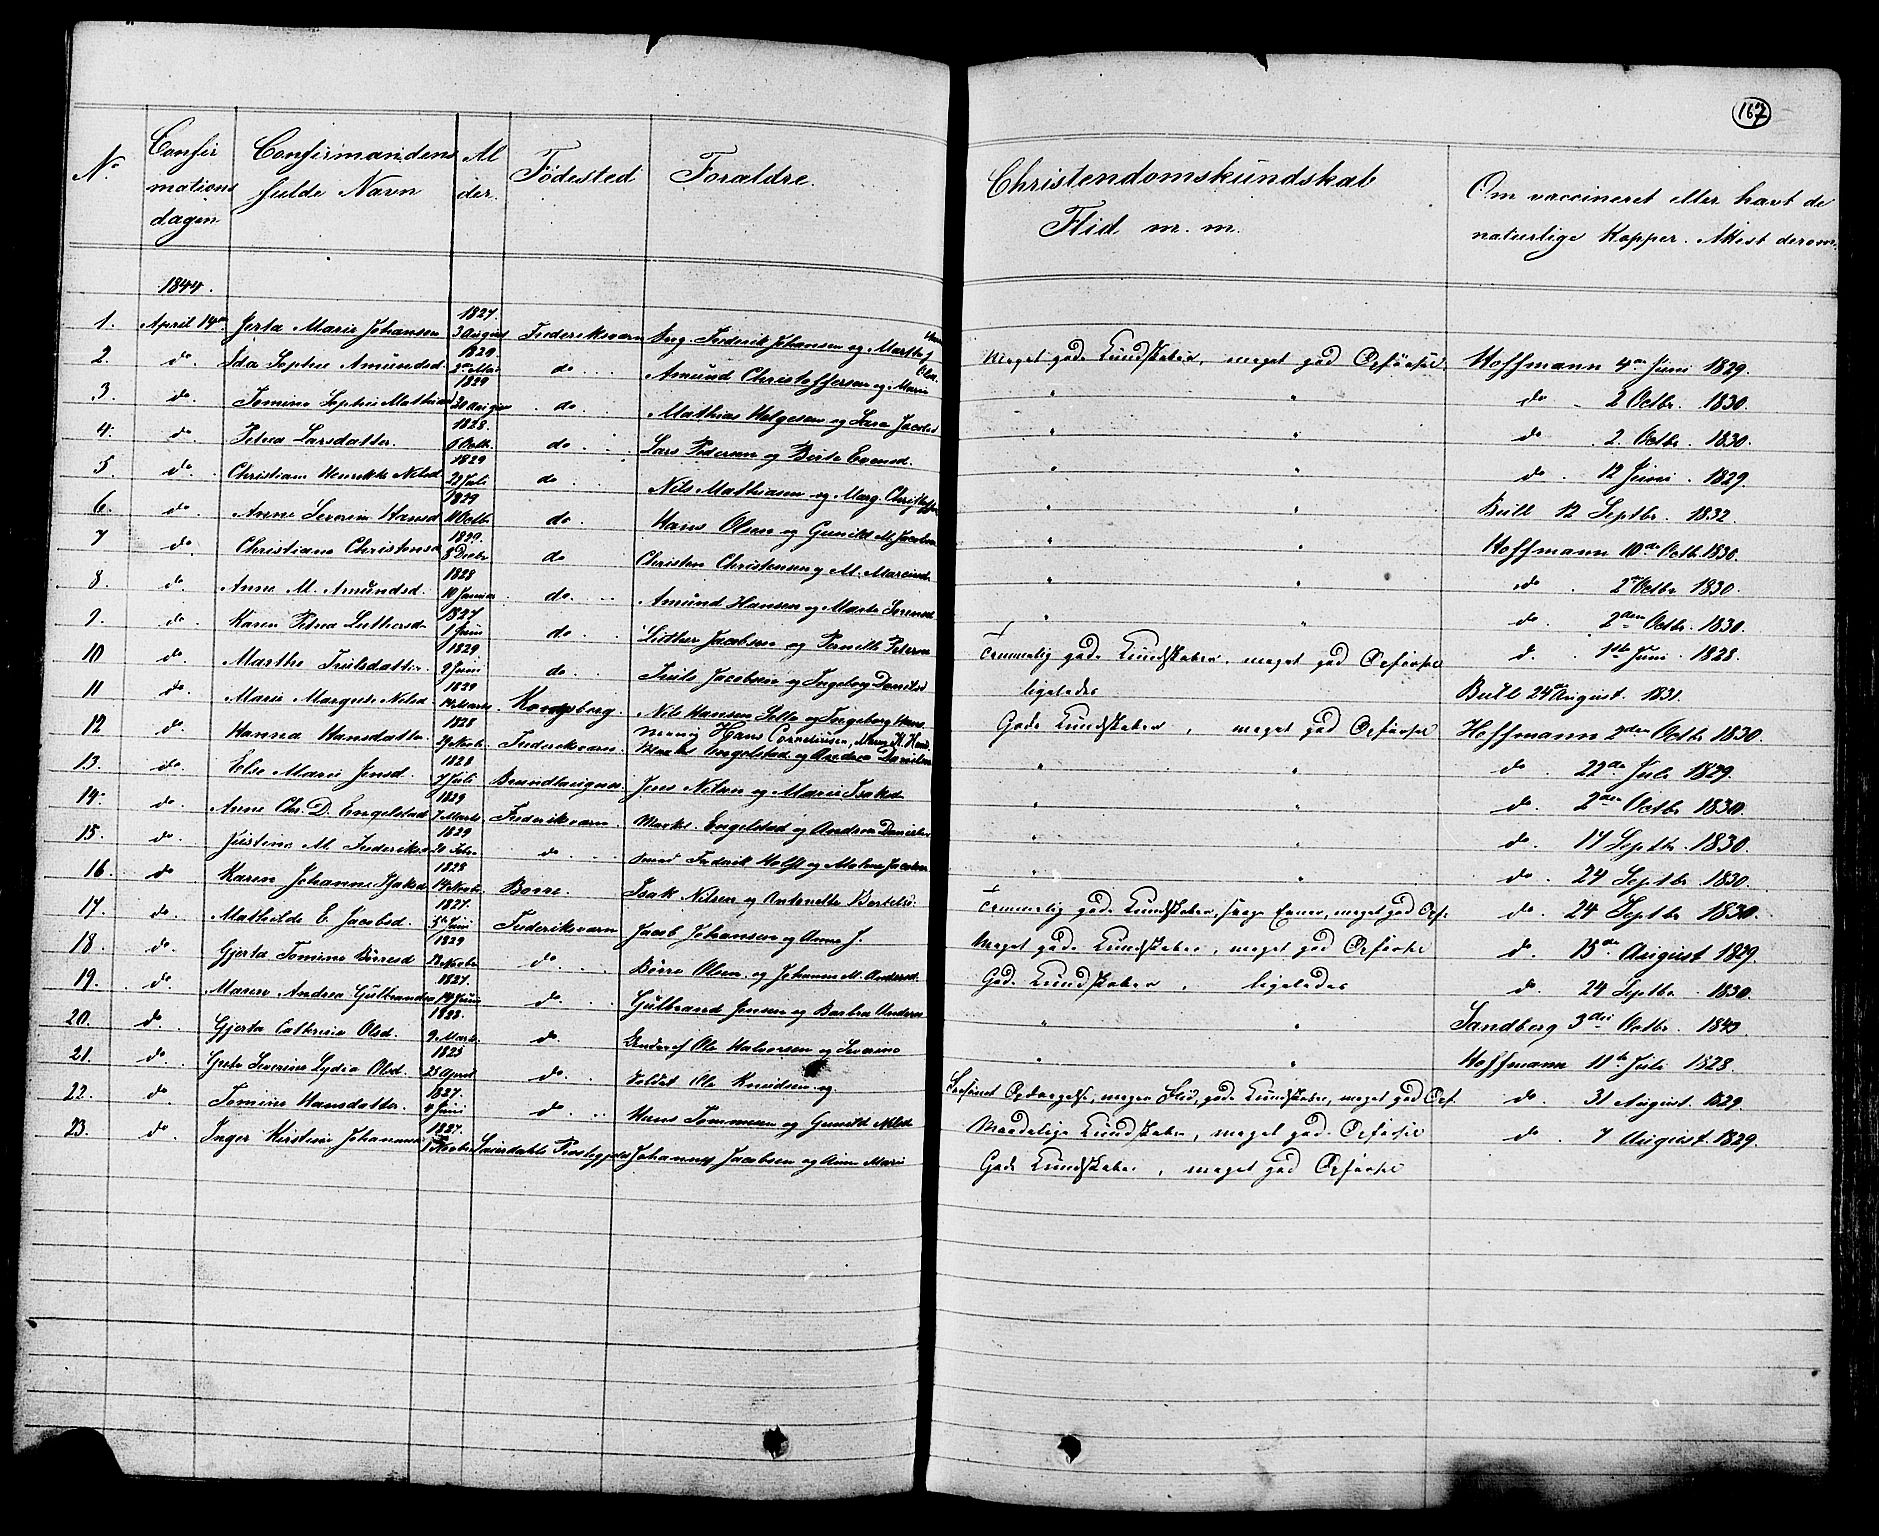 167
No
Confir mations dagen
Confirmandens fulde Navn
Al der.
Fødested
Forældre.
Christendomskundskab Flid m. m.
Om vaccineret eller havt de naturlige Kopper. Attest derom.
1844.
1. April 14de Jerta Marie Johansen 1827. 3 August Frederiksværn Frederik Johansen og Marthe J. Meget gode Kundskaber, meget god Opførsel Hoffmann 4de Juni 1829.
2. do. Ida Sophie Amundsd. 1829 do Amund Christoffersen og Maria Olsd. " " do 2 Octbr. 1830.
3. do. Tomine Sophie Mathiasd 1829 20 August do Mathias Helgesen og Sara Jacobsd " " do 2 Octbr. 1830.
4. do Petrea Larsdatter. 1828. 6 Octb. do Lars Pedersen og Berte Evensd. " " do 12 Juni 1829.
5. do Christiane Henrikke Nilsd 1829 29 Juli do Nils Mathiasen og Marg. Christoffersd " " Bull 12 Septbr. 1832.
6. do. Anne Severine Hansd 1829 11 Octbr do. Hans Olsen og Gunild M. Jacobsen " " Hoffmann 10de Octb. 1830.
7 do Christiane Christensd 1829. 8 Decbr do Christen Christensen og M. " " do 2 Octbr 1830.
8. do. Anne M. Amundsd. 1828 10 Januar do. Amund Hansen og Marte Sørensd " " do. 2den Octbr. 1830.
9. do. Karen Petrea Luthersd. 1827 1 Juni do Luther Jacobsen og Pernille Peters Temmelig gode Kundskaber, meget god Opførsel d. 1ste Juni 1828.
10 do Marthe Trulsdatter 1829 9 Juni do Truls Jacobsen og Ingeborg Danielsd ligeledes Bull 24de August. 1831.
11 do. Marie Margrete Nilsd 1829 14 Marts Kongsberg. Nils Hansen og Ingeborg Hans Gode Kundskaber, meget god Opførsel Hoffmann 2den Octbr 1830.
12 do. Hanna Hansdatter 1828 Novbr. Frederiksværn. Hans Corneliusen, Maren K. Hansd. Engelstad og Andrea Danielsen " " do. 22de Juli 1829.
13. do. Else Marie Jensd. 1828 7 Juli Brundlaugnes Jens Nilsen og Marie Isaksd " " do. 2den Octbr 1830.
14. do Anne Chr. D. Engelstad 1829 7 Marts Frederiksværn. Engelstad og Andrea Danielsen " " do. 17 Septbr. 1830.
15. do. Justine M. Frederiksd 1829 20 Febr. do. Smed Fredrik Holst og Malene Jacobsen " " do. 24 Septbr 1830.
16 do Karen Johanne Isaksd 1828 14 Novbr. Borre. Isak Nilsen og Antonette Bertelsd. Temmelig gode Kundskaber, svage Evner, meget god Opf. do. 24 Septbr 1830.
17. do. Mathilde E. Jacobsd. 1827. 5te Juni Frederiksværn Jacob Johansen og Anne J. Meget gode Kundskaber, meget god Opførsel d. 15de August 1829.
18. do. Gjerta Tomine Børresd 1829 Novbr do. Børre Olsen og Johanne M. Andersd. Gode Kundskaber, ligeledes do. 24 Septbr. 1830.
19. do. Maren Andrea Gulbrandsen 1827. 14 Juni do. Gulbrand Jensen og Barbra Andersen " " Sandberg 3die Octbr. 1843
20. do. Gjerta Cathrine Olsd. 1828. 9 Marts do. Underof. Ole Halvorsen og Severine " " Hoffmann 11te Juli 1828.
21. do. Grete Severine Lydia Olsd. 1825 25 April do. Soldat Ole Knudsen og Forsømt Opdragelse, megen Flid, gode Kundskaber, meget god Opf. do. 31 August. 1829.
22. do. Tomine Hansdatter. 1827. 4 Juni do. Hans Tommesen og Gunild Nilsd Maadelige Kundskaber, meget god Opførsel do. 7 August. 1829.
23. do. Inger Kirstine Johannes 1827. Novbr. Præstegjeld Johannes Jacobsen og Anne Marie Gode Kundskaber, meget god Opførsel